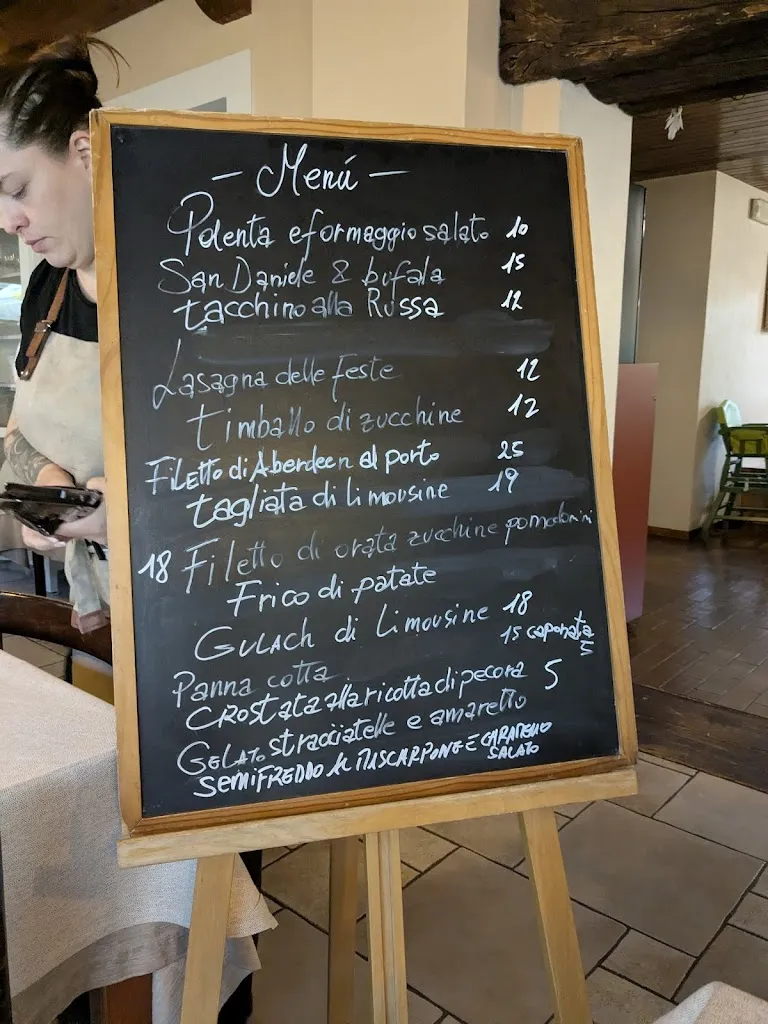 - Menú -
Polenta e formaggio salato 10
San Daniele & bufala 15
tacchino alla Russa 12
Lasagna delle Feste 12
timballo di zucchine 12
Filetto di Aberdeen al porto 25
tagliata di limousine 19
18 Filetto di orata zucchine pomodorini
Frico di patate
GULACH di Limousine 18
15 caponata
5
Panna cotta
CROstata alla ricotta di pecora 5
GELATO stracciatelle e amaretto
SEMIFREDDO AL MASCARPONE E CARAMELLO
SALATO